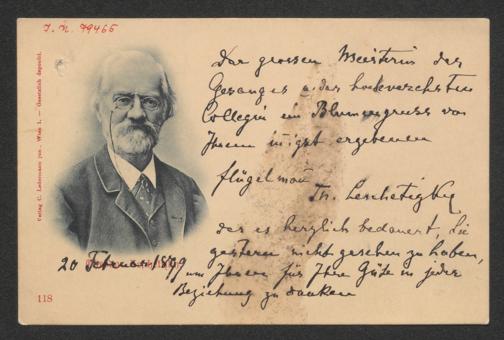 J. N. 79465
Verlag C. Ledermann jun., Wien I. — Gesetzlich deponirt.
Der grossen Meisterin des
Gesanges u. der hochverehrten
Collegin ein Blumengruss von
Ihrem innigst ergebenen
Flügelmann
Th. Leschetizky
der es herzlich bedauert, Sie
gestern nicht gesehen zu haben,
um Ihnen für Ihre Güte in jeder
Beziehung zu danken
20 Februar 1899
118